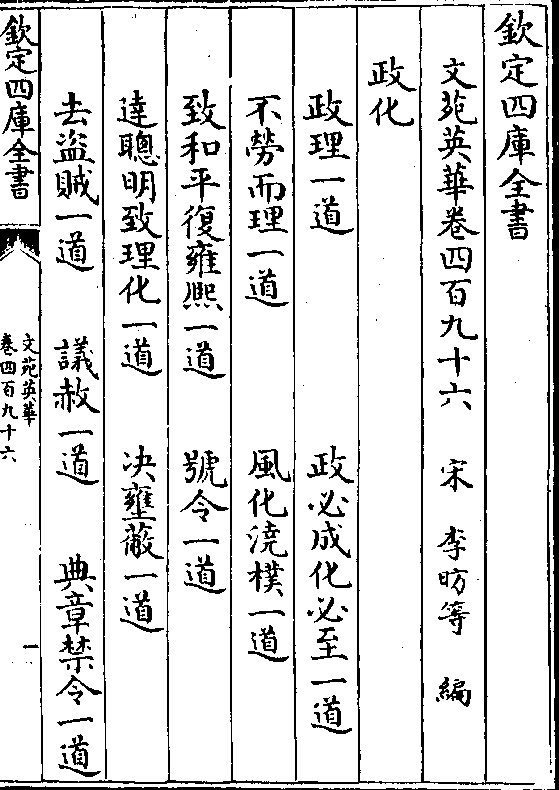 欽定四庫全書
文苑英華卷四百九十六　宋　李昉等　編
政化
政理一道　政必成化必至一道
不勞而理一道　風化澆樸一道
致和平復雍熙一道　號令一道
達聰明致理化一道　决壅蔽一道
去盜賊一道　議赦一道　典章禁令一道
欽定四庫全書
文苑英華
卷四百九十六
一